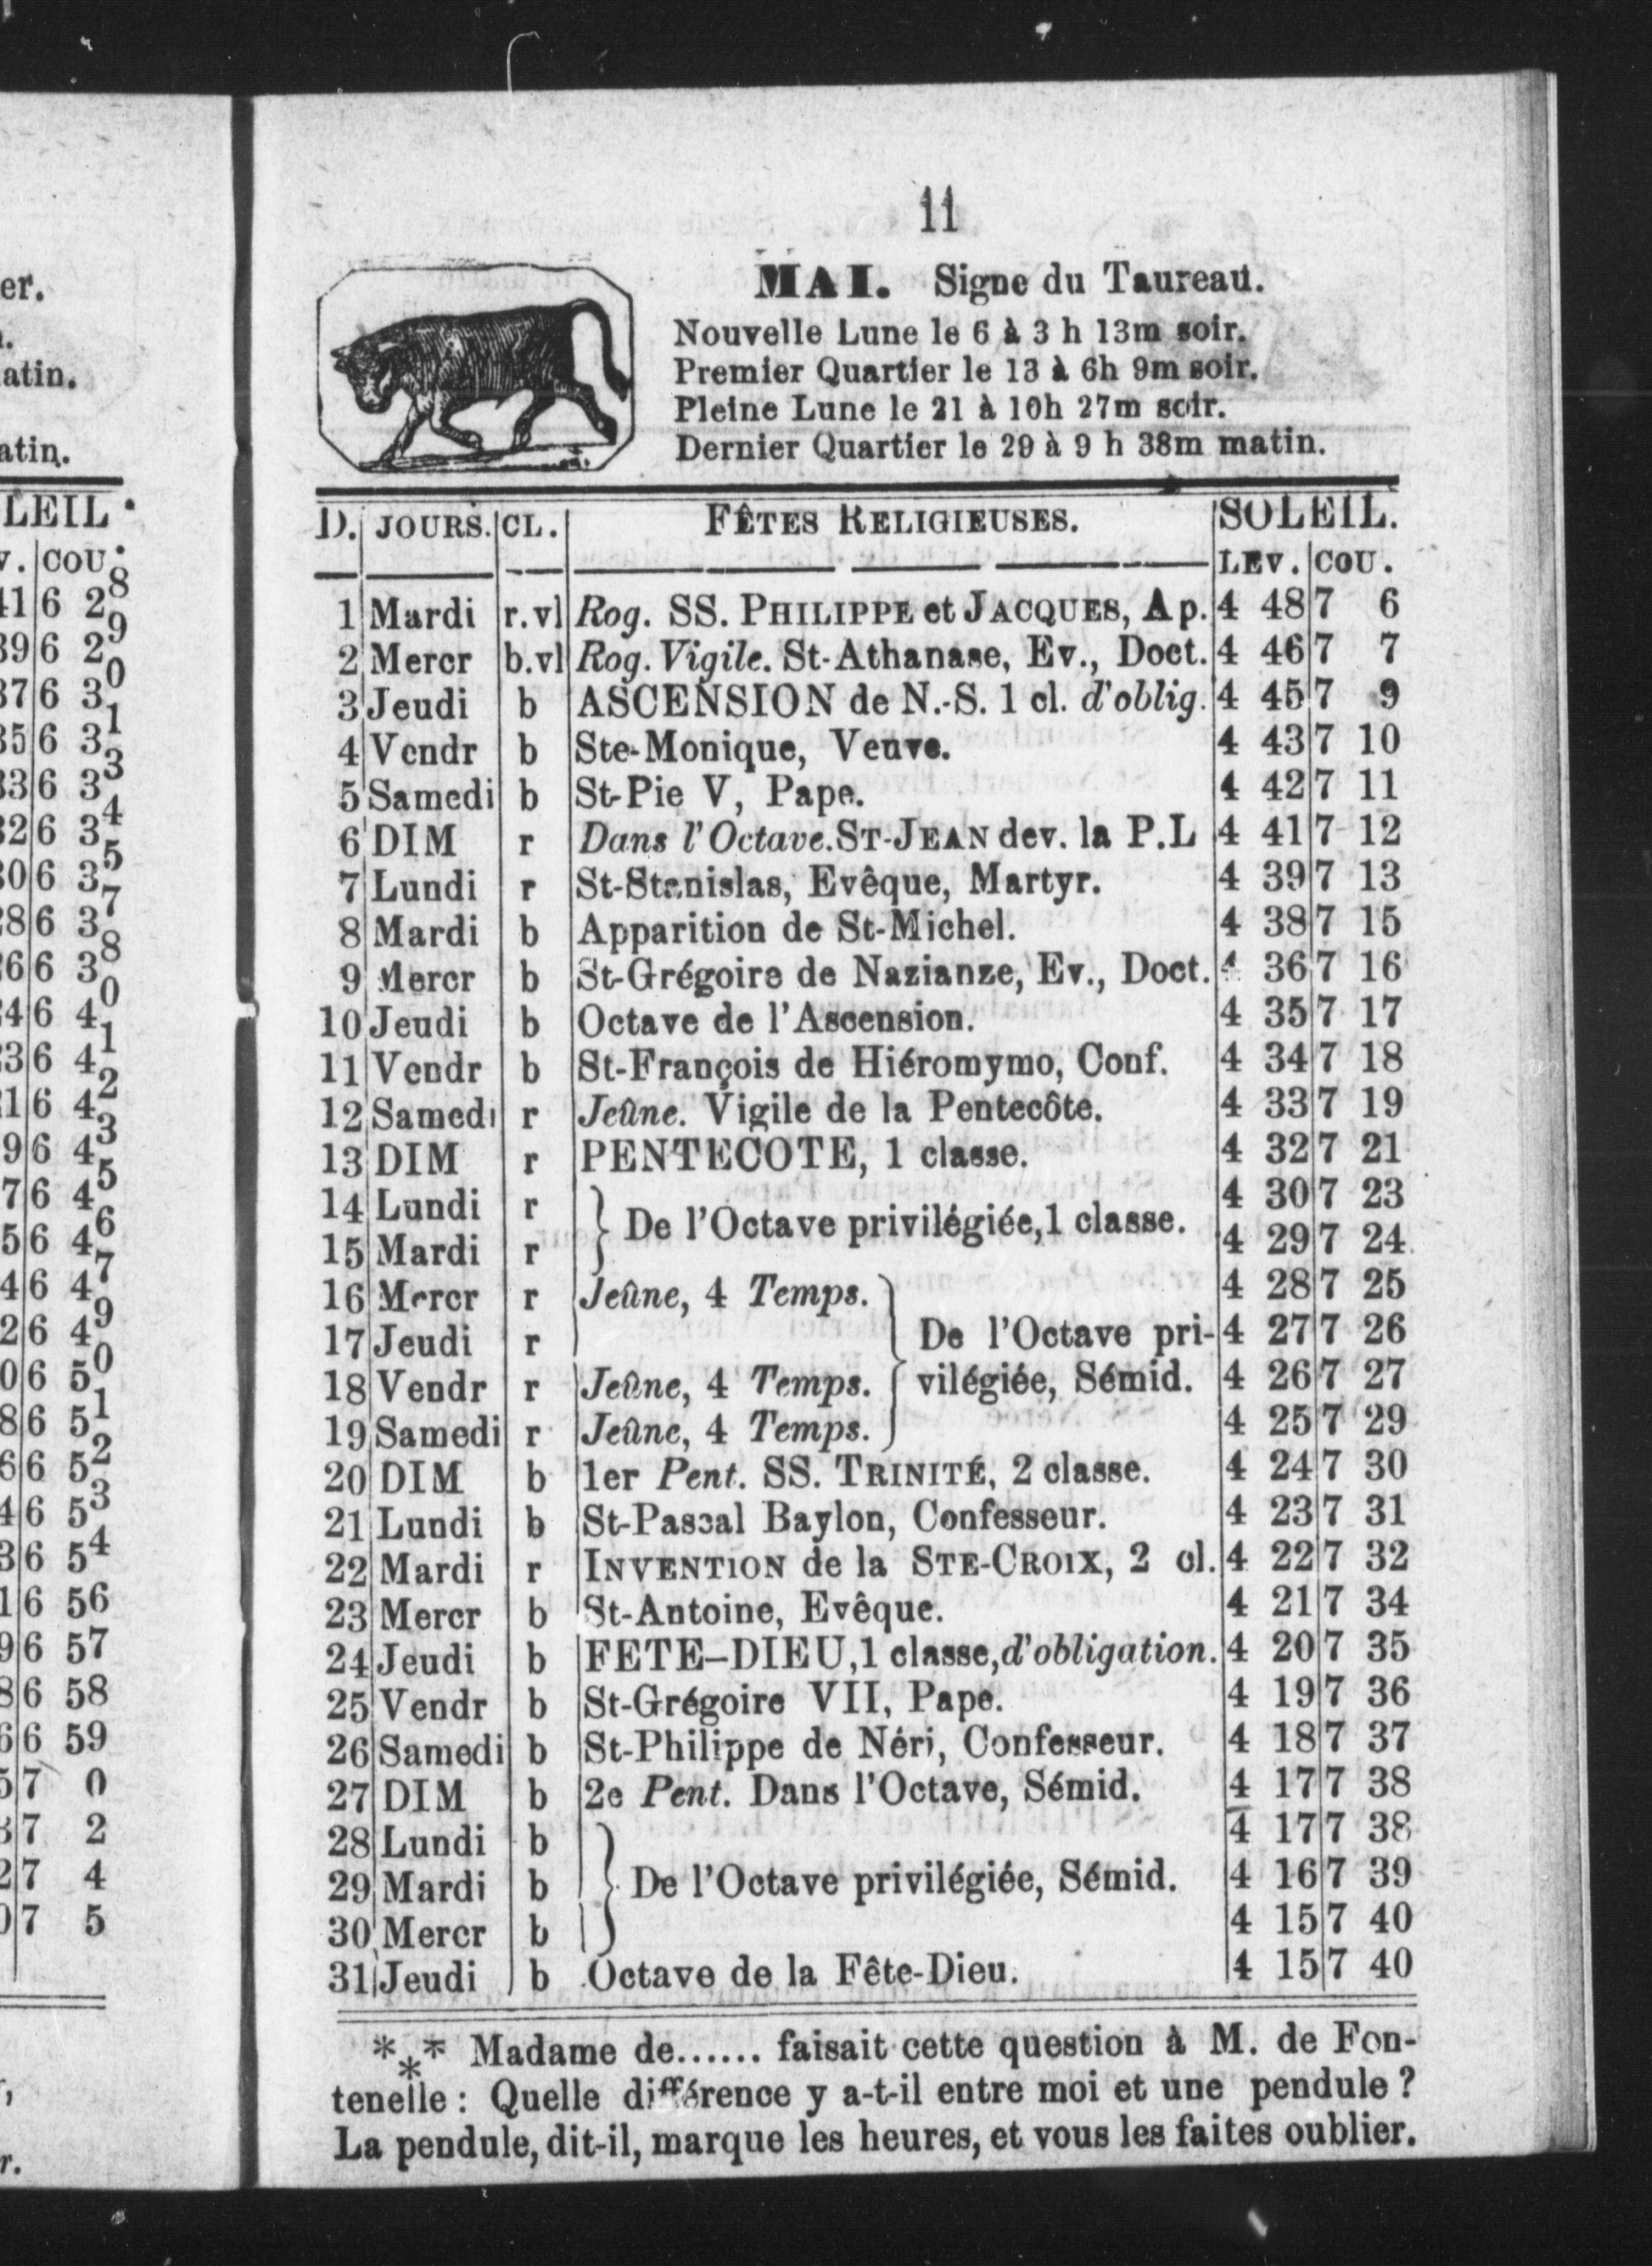 11
MAI. Signe du Taureau.
Nouvelle Lune le 6 à 3 h 13m soir.
Premier Quartier le 13 à 6h 9m soir.
Pleine Lune le 21 à 10h 27m soir.
Dernier Quartier le 29 à 9 h 38m matin.
D. JOURS. CL. FÊTES RELIGIEUSES. SOLEIL.
LEV. COU.
1 Mardi r.vl Rog. SS. PHILIPPE et JACQUES, Ap. 4 48 7 6
2 Mercr b.vl Rog. Vigile. St-Athanase, Ev., Doct. 4 46 7 7
3 Jeudi b ASCENSION de N.-S. 1 cl. d'oblig. 4 45 7 9
4 Vendr b Ste-Monique, Veuve. 4 43 7 10
5 Samedi b St-Pie V, Pape. 4 42 7 11
6 DIM r Dans l'Octave. ST-JEAN dev. la P.L 4 41 7 12
7 Lundi r St-Stanislas, Evêque, Martyr. 4 39 7 13
8 Mardi b Apparition de St-Michel. 4 38 7 15
9 Mercr b St-Grégoire de Nazianze, Ev., Doct. 4 36 7 16
10 Jeudi b Octave de l'Ascension. 4 35 7 17
11 Vendr b St-François de Hiéromymo, Conf. 4 34 7 18
12 Samedi r Jeûne. Vigile de la Pentecôte. 4 33 7 19
13 DIM r PENTECOTE, 1 classe. 4 32 7 21
14 Lundi r 4 30 7 23
De l'Octave privilégiée, 1 classe.
15 Mardi r 4 29 7 24
16 Mercr r Jeûne, 4 Temps. 4 28 7 25
17 Jeudi r De l'Octave pri- 4 27 7 26
18 Vendr r Jeûne, 4 Temps. vilégiée, Sémid. 4 26 7 27
19 Samedi r Jeûne, 4 Temps. 4 25 7 29
20 DIM b 1er Pent. SS. TRINITÉ, 2 classe. 4 24 7 30
21 Lundi b St-Pascal Baylon, Confesseur. 4 23 7 31
22 Mardi r INVENTION de la STE-CROIX, 2 cl. 4 22 7 32
23 Mercr b St-Antoine, Evêque. 4 21 7 34
24 Jeudi b FETE-DIEU, 1 classe, d'obligation. 4 20 7 35
25 Vendr b St-Grégoire VII, Pape. 4 19 7 36
26 Samedi b St-Philippe de Néri, Confesseur. 4 18 7 37
27 DIM b 2e Pent. Dans l'Octave, Sémid. 4 17 7 38
28 Lundi b 4 17 7 38
29 Mardi b De l'Octave privilégiée, Sémid. 4 16 7 39
30 Mercr b 4 15 7 40
31 Jeudi b Octave de la Fête-Dieu. 4 15 7 40
*** Madame de...... faisait cette question à M. de Fon-
tenelle : Quelle différence y a-t-il entre moi et une pendule ?
La pendule, dit-il, marque les heures, et vous les faites oublier.